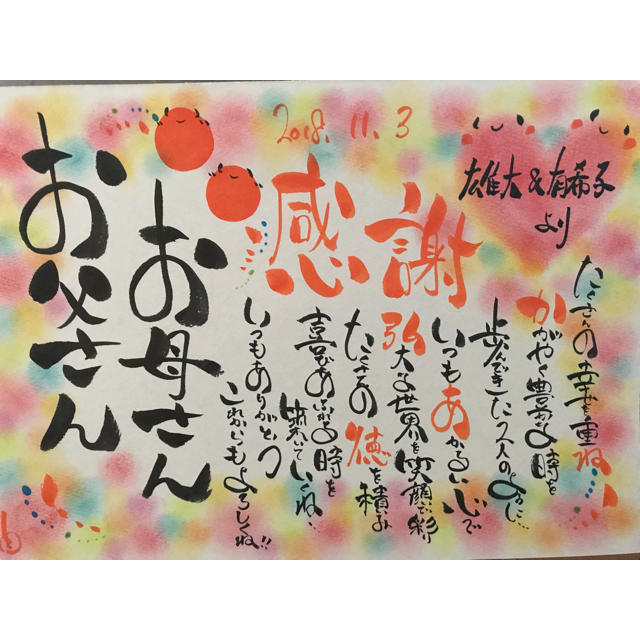 2018. 11. 3
雄大&有希子
より
感謝
たくさんの幸せを重ね
かがやく豊かな時を
歩んできた2人のように…
いつもあかるい心で
弘大な世界を笑顔で彩
たくさんの徳を積み
喜びあふれる時を
築いていくね…
いつもありがとう
これからもよろしくね!!
お母さん
お父さん